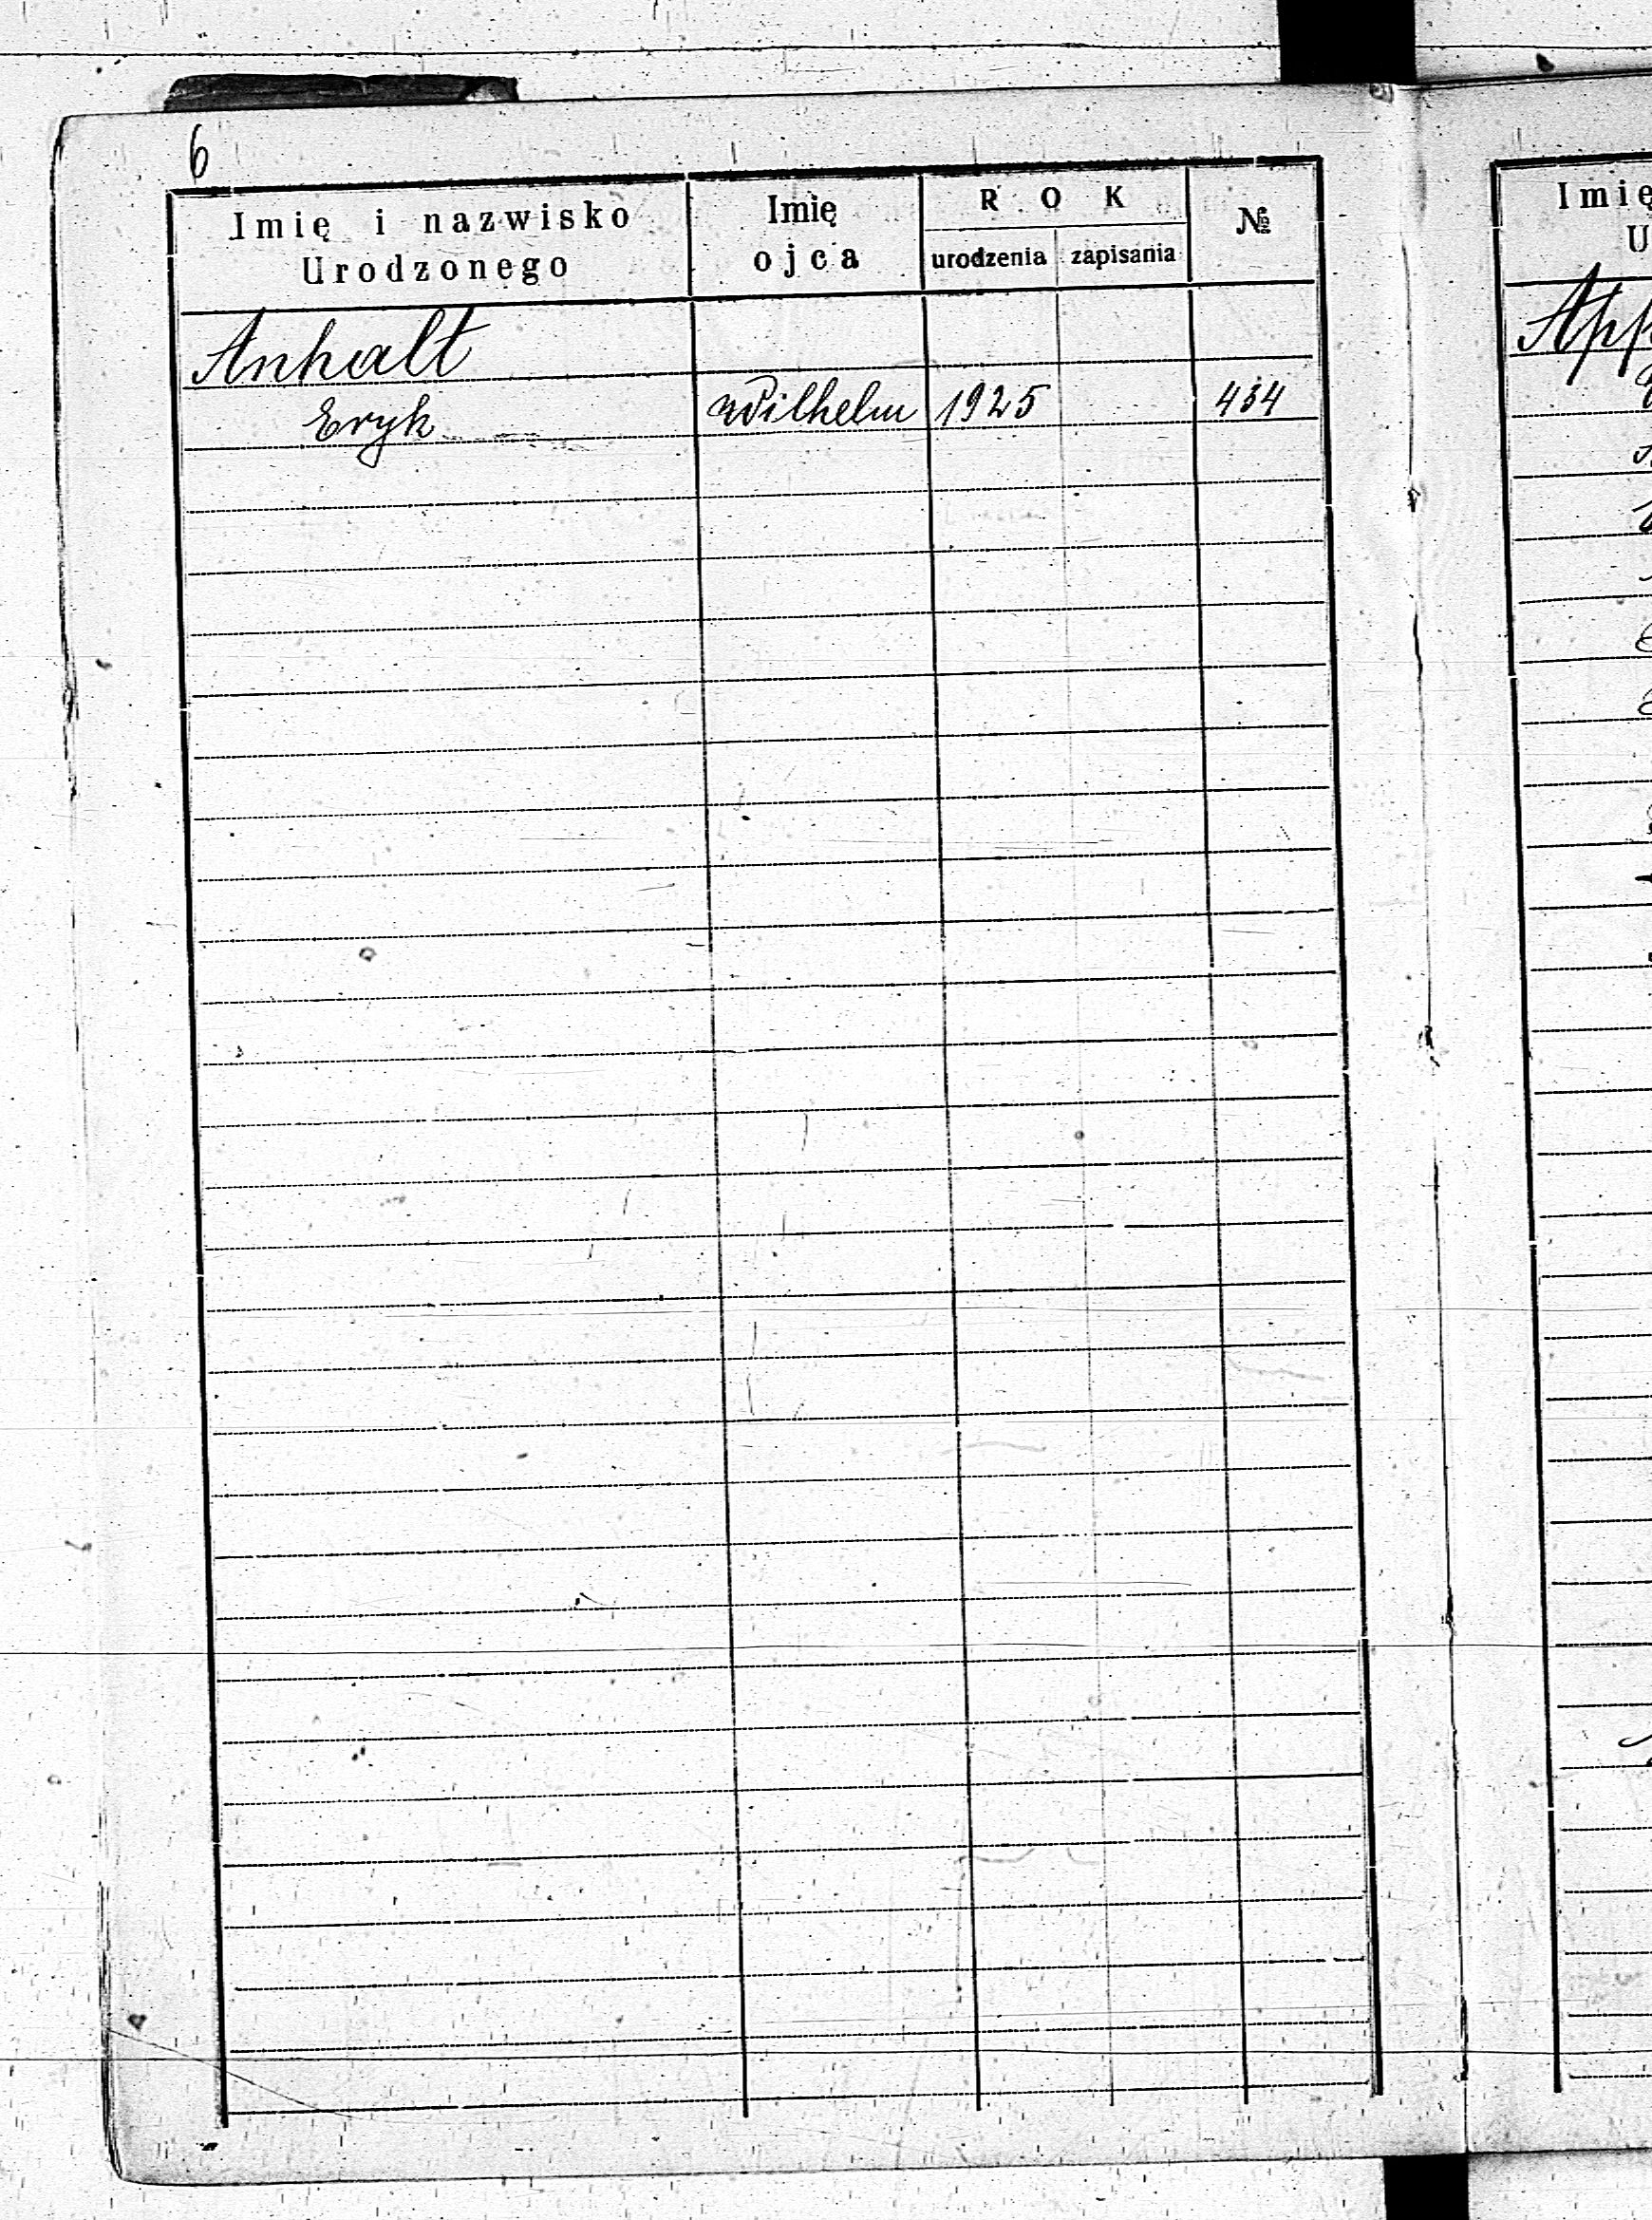 6
Imię i nazwisko
Urodzonego
Imię
ojca
ROK
urodzenia zapisania
№
Anhalt
Eryk Wilhelm 1925 434
Imię